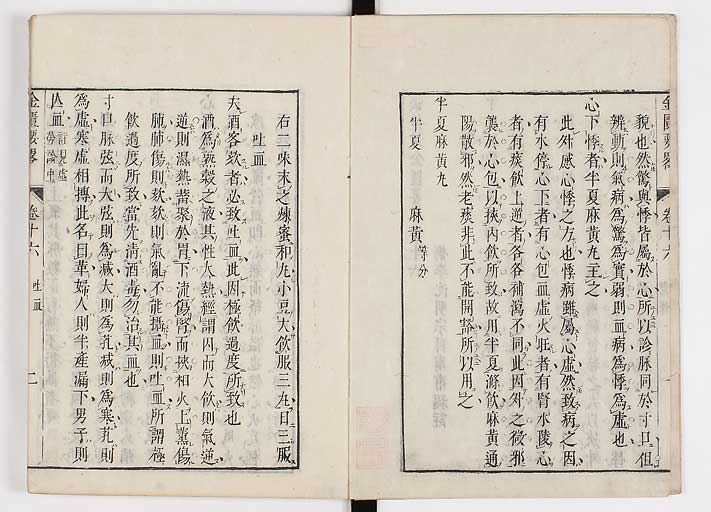 貌也然驚與悸皆屬於心所以診脈同於寸口但
辨動則氣病為驚為實弱則血病為悸為虛也
心下悸者半夏麻黃丸主之
此外感心悸之方也悸病雖屬心虛然致病之因
有水停心下者有心包血虛火旺者有腎水陵心
者有痰飲上逆者各各補瀉不同此因外之微邪
襲於心包以挾內飲所致故用半夏滌飲麻黃通
陽散邪然老痰非此不能開豁所以用之
半夏麻黃丸
半夏 麻黃等分
金匱要畧 卷十六
右二味末之煉蜜和丸小豆大飲服三丸日三服
吐血
夫酒客欬者必致吐血此因極飲過度所致也
酒為蒸穀之液其性大熱經謂因而大飲則氣逆
逆則濕熱蓄聚於胃下流傷腎而挾相火上蒸傷
肺肺傷則欬欬則氣亂不能攝血則吐血所謂極
飲過度所致當先清酒毒勿治其血也
寸口脈弦而大弦則為減大則為芤減則為寒芤則
為虛寒虛相摶此名曰革婦人則半產漏下男子則
亡血
金匱要畧 卷十六 吐血 二